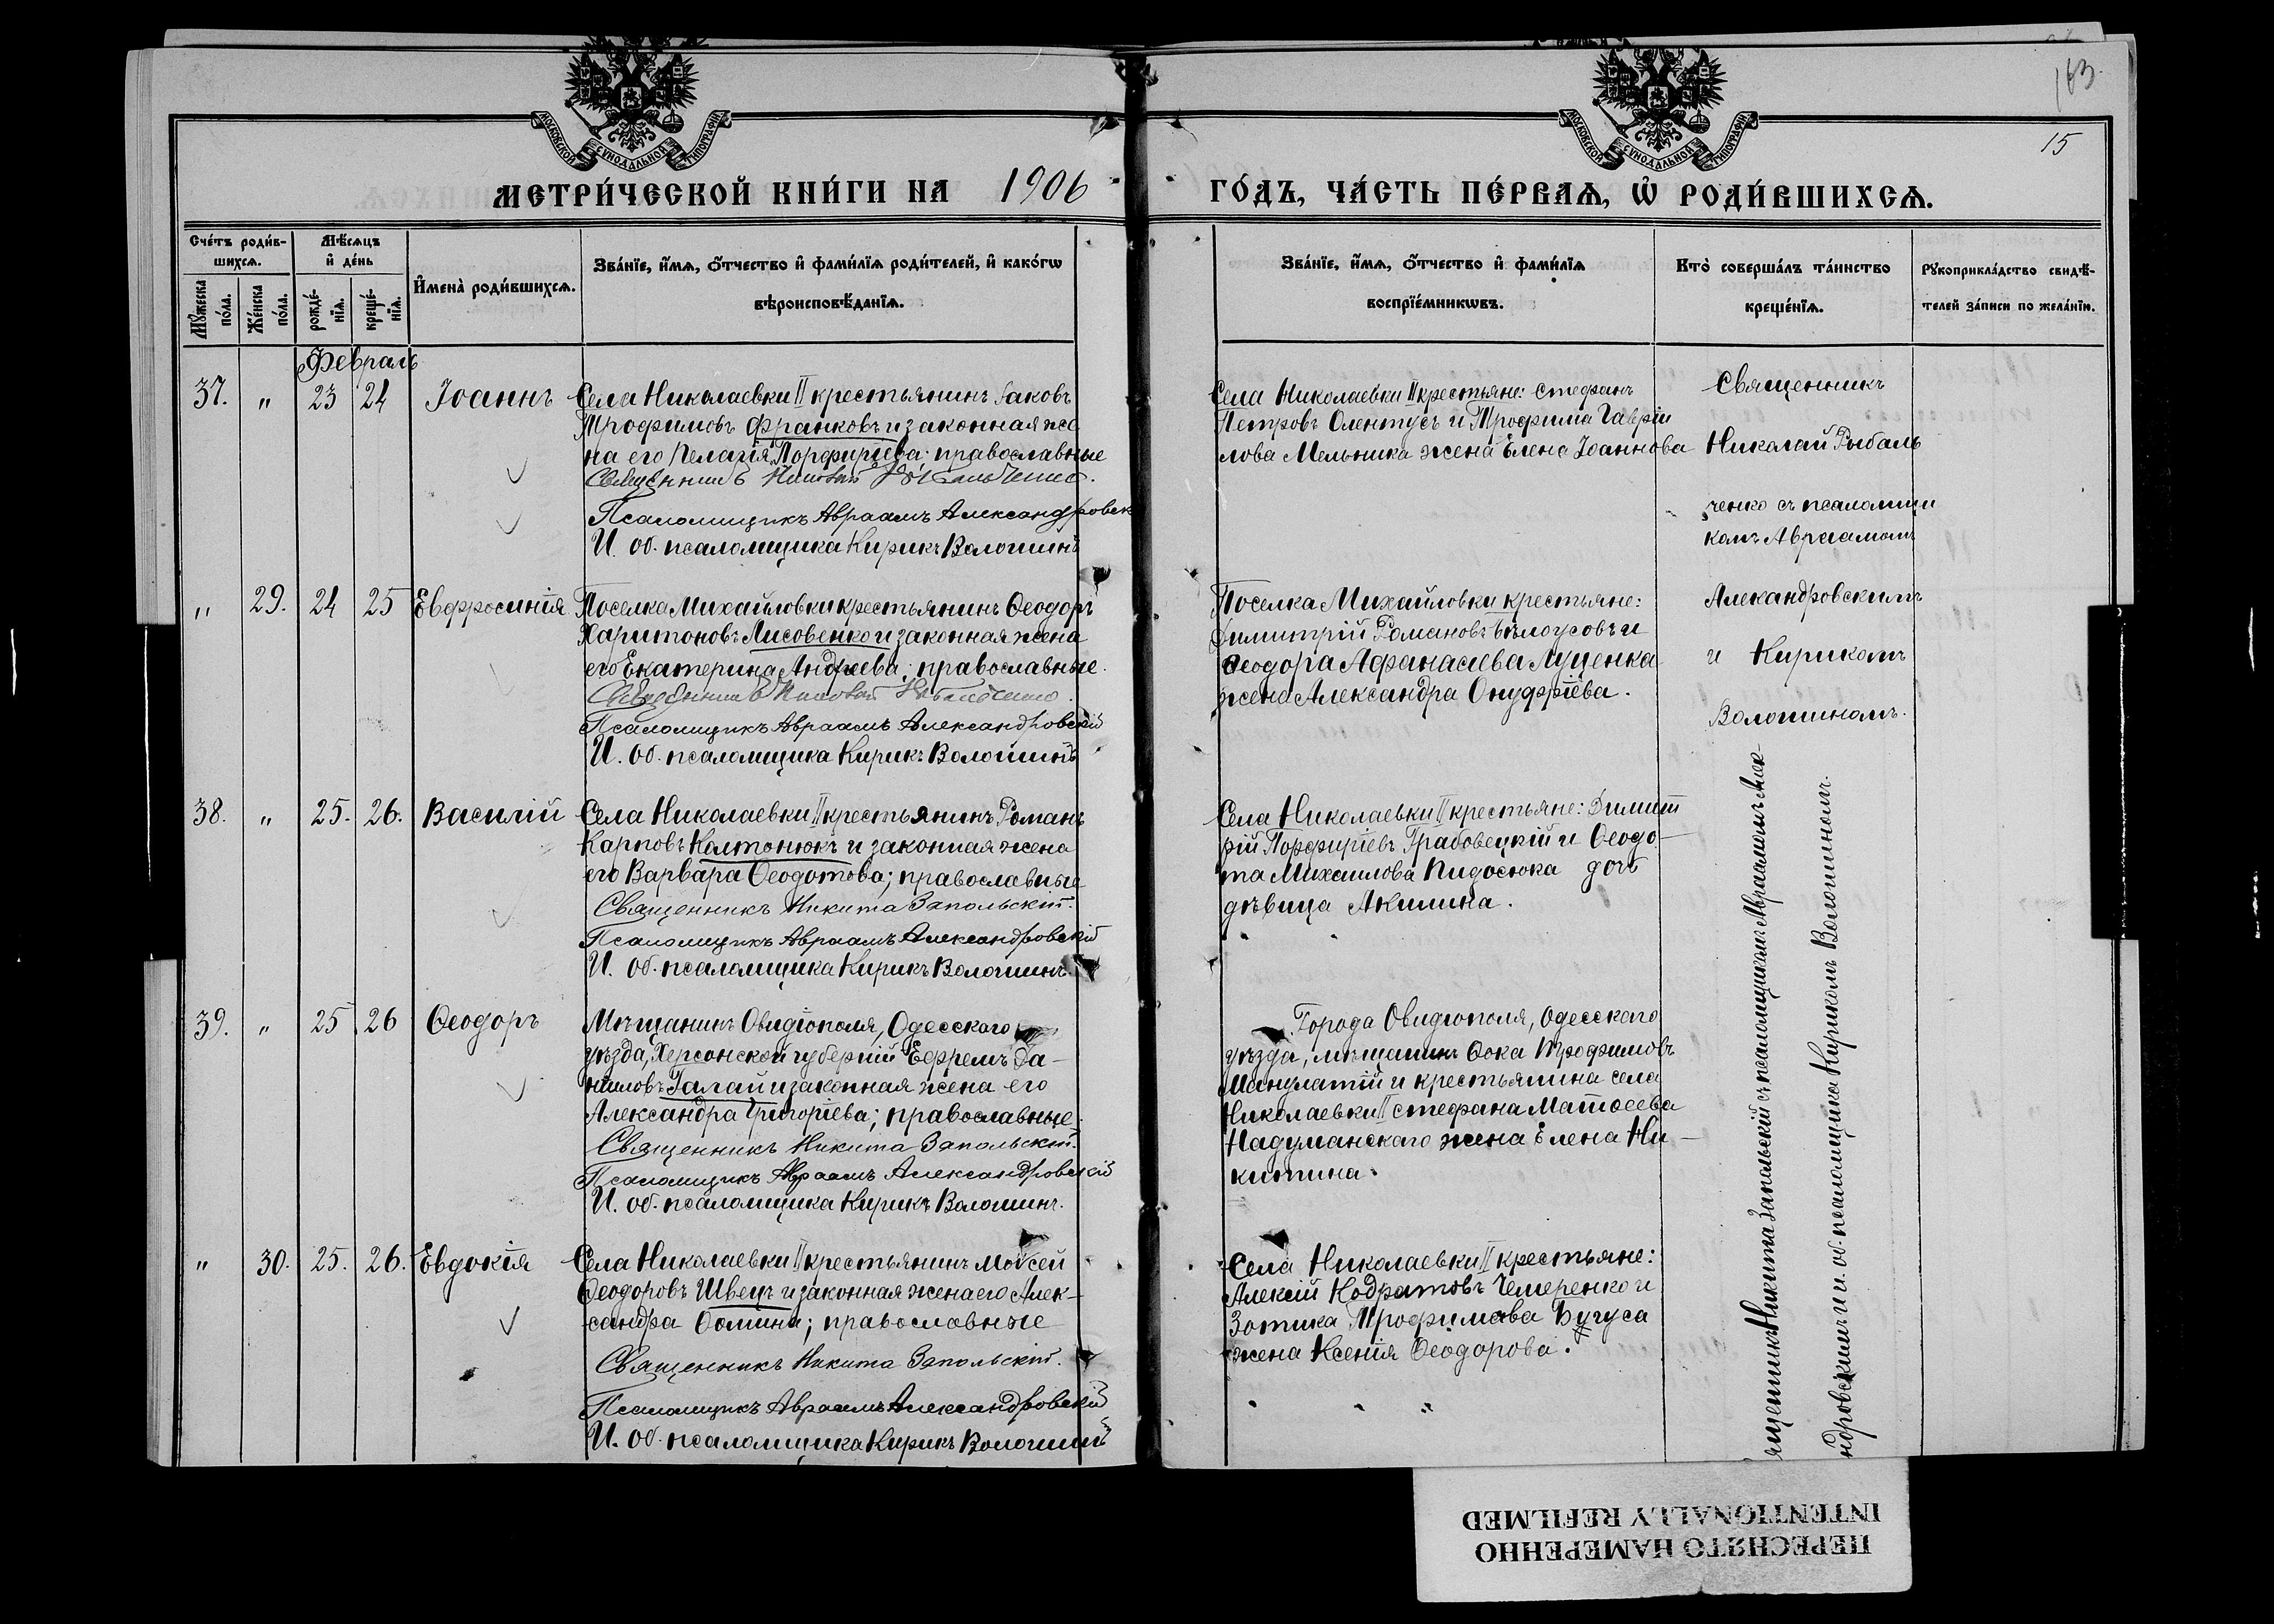 163.
15
МОСКОВСКОЙ СУНОДАЛЬНОЙ ТИПОГРАФІИ
МОСКОВСКОЙ СУНОДАЛЬНОЙ ТИПОГРАФІИ
МЕТРИ́ЧЕСКОЙ КНИ́ГИ НА 1906
ГО́ДЪ, ЧА́СТЬ ПЕ́РВАѦ, Ѡ҆ РОДИ́ВШИХСѦ.
Сче́тъ роди́в-
шихсѧ.
Мѣ́сѧцъ
и҆ де́нь
Мꙋ́жеска
по́ла.
Же́нска
по́ла.
рожде́-
нїѧ.
креще́-
нїѧ.
И҆мена̀ роди́вшихсѧ.
Зва́нїе, и҆́мѧ, ѻ҆́тчество и҆ фами́лїѧ роди́телей, и҆ како́гѡ
вѣроисповѣ́данїѧ.
Зва́нїе, и҆́мѧ, ѻ҆́тчество и҆ фами́лїѧ
воспрїе́мникѡвъ.
Кто̀ соверша́лъ та́инство
креще́нїѧ.
Рꙋкоприкла́дство свидѣ́-
телей за́писи по жела́нїю.
Февраль
37. „ 23 24 Іоаннъ
Села Николаевки II крестьянинъ Іаковъ
Трофимовъ Франковъ и законная же
на его Пелагія Порфиріева; православные
Священникъ Николай Рыбальченко.
Псаломщикъ Авраамъ Александровск
И. об. псаломщика Кирикъ Волошинъ
Села Николаевки II крестьяне: Стефанъ
Петровъ Олентусъ и Трофима Гаврiи
лова Мельника жена Елена Іоаннова
Священникъ
Николай Рыбаль
ченко съ псаломщи
комъ Авраамомъ
Алекандровскимъ
и Кирикомъ
Волошиномъ.
„ 29. 24 25 Евфросинія
Поселка Михайловки крестьянинъ Ѳеодоръ
Харитоновъ Лисовенко и законная жена
его Екатерина Андреева; православные.
Священникъ Николай Рыбальченко.
Псаломщикъ Авраамъ Александровскій
И. об. псаломщика Кирикъ Волошинъ
Поселка Михайловки крестьяне:
Димитрій Романовъ Бѣлоусовъ и
Ѳеодора Афанасіева Луценка
жена Александра Онуфріева.
38. „ 25. 26. Василій
Села Николаевки II крестьянинъ Романъ
Карповъ Колтонюкъ и законная жена
его Варвара Ѳеодотова; православные
Священникъ Никита Запольскій.
Псаломщикъ Авраамъ Александровскій
И. об. псаломщика Кирикъ Волошинъ.
Села Николаевки II крестьяне: Димит
рій Порфиріевъ Грабовецкій и Ѳеодо-
та Михаилова Пидосюка дочь
дѣвица Акилина.
39. „ 25 26 Ѳеодоръ
Мѣщанинъ Овидіополя, Одесскаго
уѣзда, Херсонской губерніи Ефремъ Да-
ниловъ Галай и законная жена его
Александра Григоріева; православные.
Священникъ Никита Запольскій.
Псаломщикъ Авраамъ Александровскій
И. об. псаломщика Кирикъ Волошинъ.
Города Овидіополя, Одесскаго
уѣзда, мѣщанинъ Ѳока Трофимовъ
и крестьянина села
Николаевки II Стефана Матѳеева
Надуманскаго жена Елена Ни-
китина.
„ 30. 25. 26. Евдокія
Села Николаевки II крестьянинъ Моѵсей
Ѳеодоровъ Швецъ и законная жена его Алек-
сандра Ѳомина; православные
Священникъ Никита Запольскій.
Псаломщикъ Авраамъ Александровскій
И. об. псаломщика Кирикъ Волошинъ
Села Николаевки II крестьяне:
Алексій Кодратовъ Чемеренко и
Зотика Трофимова Бугуса
жена Ксенія Ѳеодорова.
ященникъ Никита Запольскій съ псаломщикомъ Авраамомъ Алек-
ндровскимъ и и. об. псаломщика Кирикомъ Волошиномъ.
ПЕРЕСНЯТО НАМЕРЕННО
INTENTIONALLY REFILMED